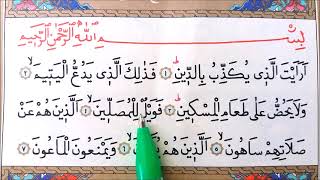 بِسْمِ اللّٰهِ الرَّحْمٰنِ الرَّحِيْمِ
اَرَاَيْتَ الَّذِىْ يُكَذِّبُ بِالدِّيْنِ ۱ فَذٰلِكَ الَّذِىْ يَدُعُّ الْيَتِيْمَ ۲
وَلَا يَحُضُّ عَلٰى طَعَامِ الْمِسْكِيْنِ ۳ فَوَيْلٌ لِّلْمُصَلِّيْنَ ۴ الَّذِيْنَ هُمْ عَنْ
صَلَاتِهِمْ سَاهُوْنَ ۵ الَّذِيْنَ هُمْ ۶ وَيَمْنَعُوْنَ الْمَاعُوْنَ ۷